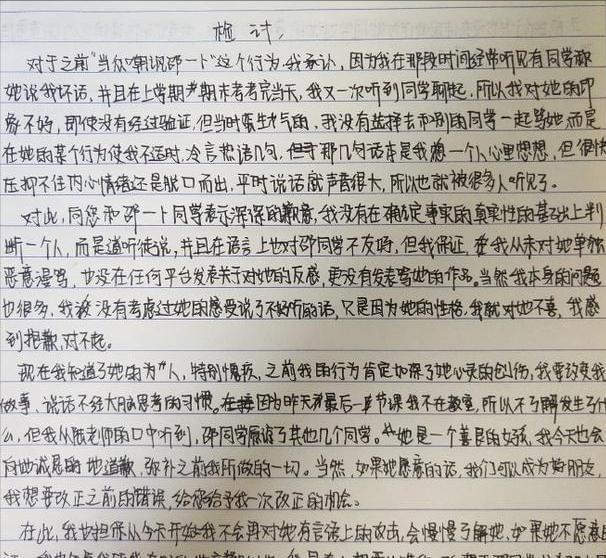 检讨,
对于之前"当众嘲讽邵一卜"这个行为,我承认,因为我在那段时间经常听见有同学称
她说我坏话,并且在上学期期末考考完当天,我又一次听到同学聊起,所以我对她的印
象不好,即使没有经过验证,但当时蛮生气的,我没有选择去和别的同学一起骂她,而是
在她的某个行为使我不适时,冷言热语几句,但于那几句话本是我想一个人心里想想,但很快
压抑不住内心情绪还是脱口而出,平时说话就声音很大,所以也就被很多人听见了。
对此,向您和邵一卜同学表示深深的歉意,我没有在确定事实的真实性的基础上判
断一个人,而是道听徒说,并且在语言上也对邵同学不友好,但我保证,我从未对她单独
恶意漫骂,也没在任何平台发表关于对她的反感,更没有发表骂她的作品。当然我本身的问题
也很多,我没有考虑过她的感受说了不好听的话,又是因为她的性格,我就对她不喜,我感
到抱歉,对不起。
现在我知道了她的为人,特别愧疚,之前我的行为肯定加深了她心灵的创伤,我要改变我
做事、说话不经大脑思考的习惯。因为昨天最后一节课我不在教室,所以不了解发生了什
么,但我从陈老师的口中听到,邵同学原谅了其他几个同学。她是一个善良的女孩,我今天也会
向她诚恳的地道歉,弥补之前我所做的一切。当然,如果她愿意的话,我们可以成为好朋友,
我想要改正之前的错误,给您给予我一次改正的机会。
在此,我也担保从今天开始我不会再对她有言语上的攻击,会慢慢了解她,如果她不愿意